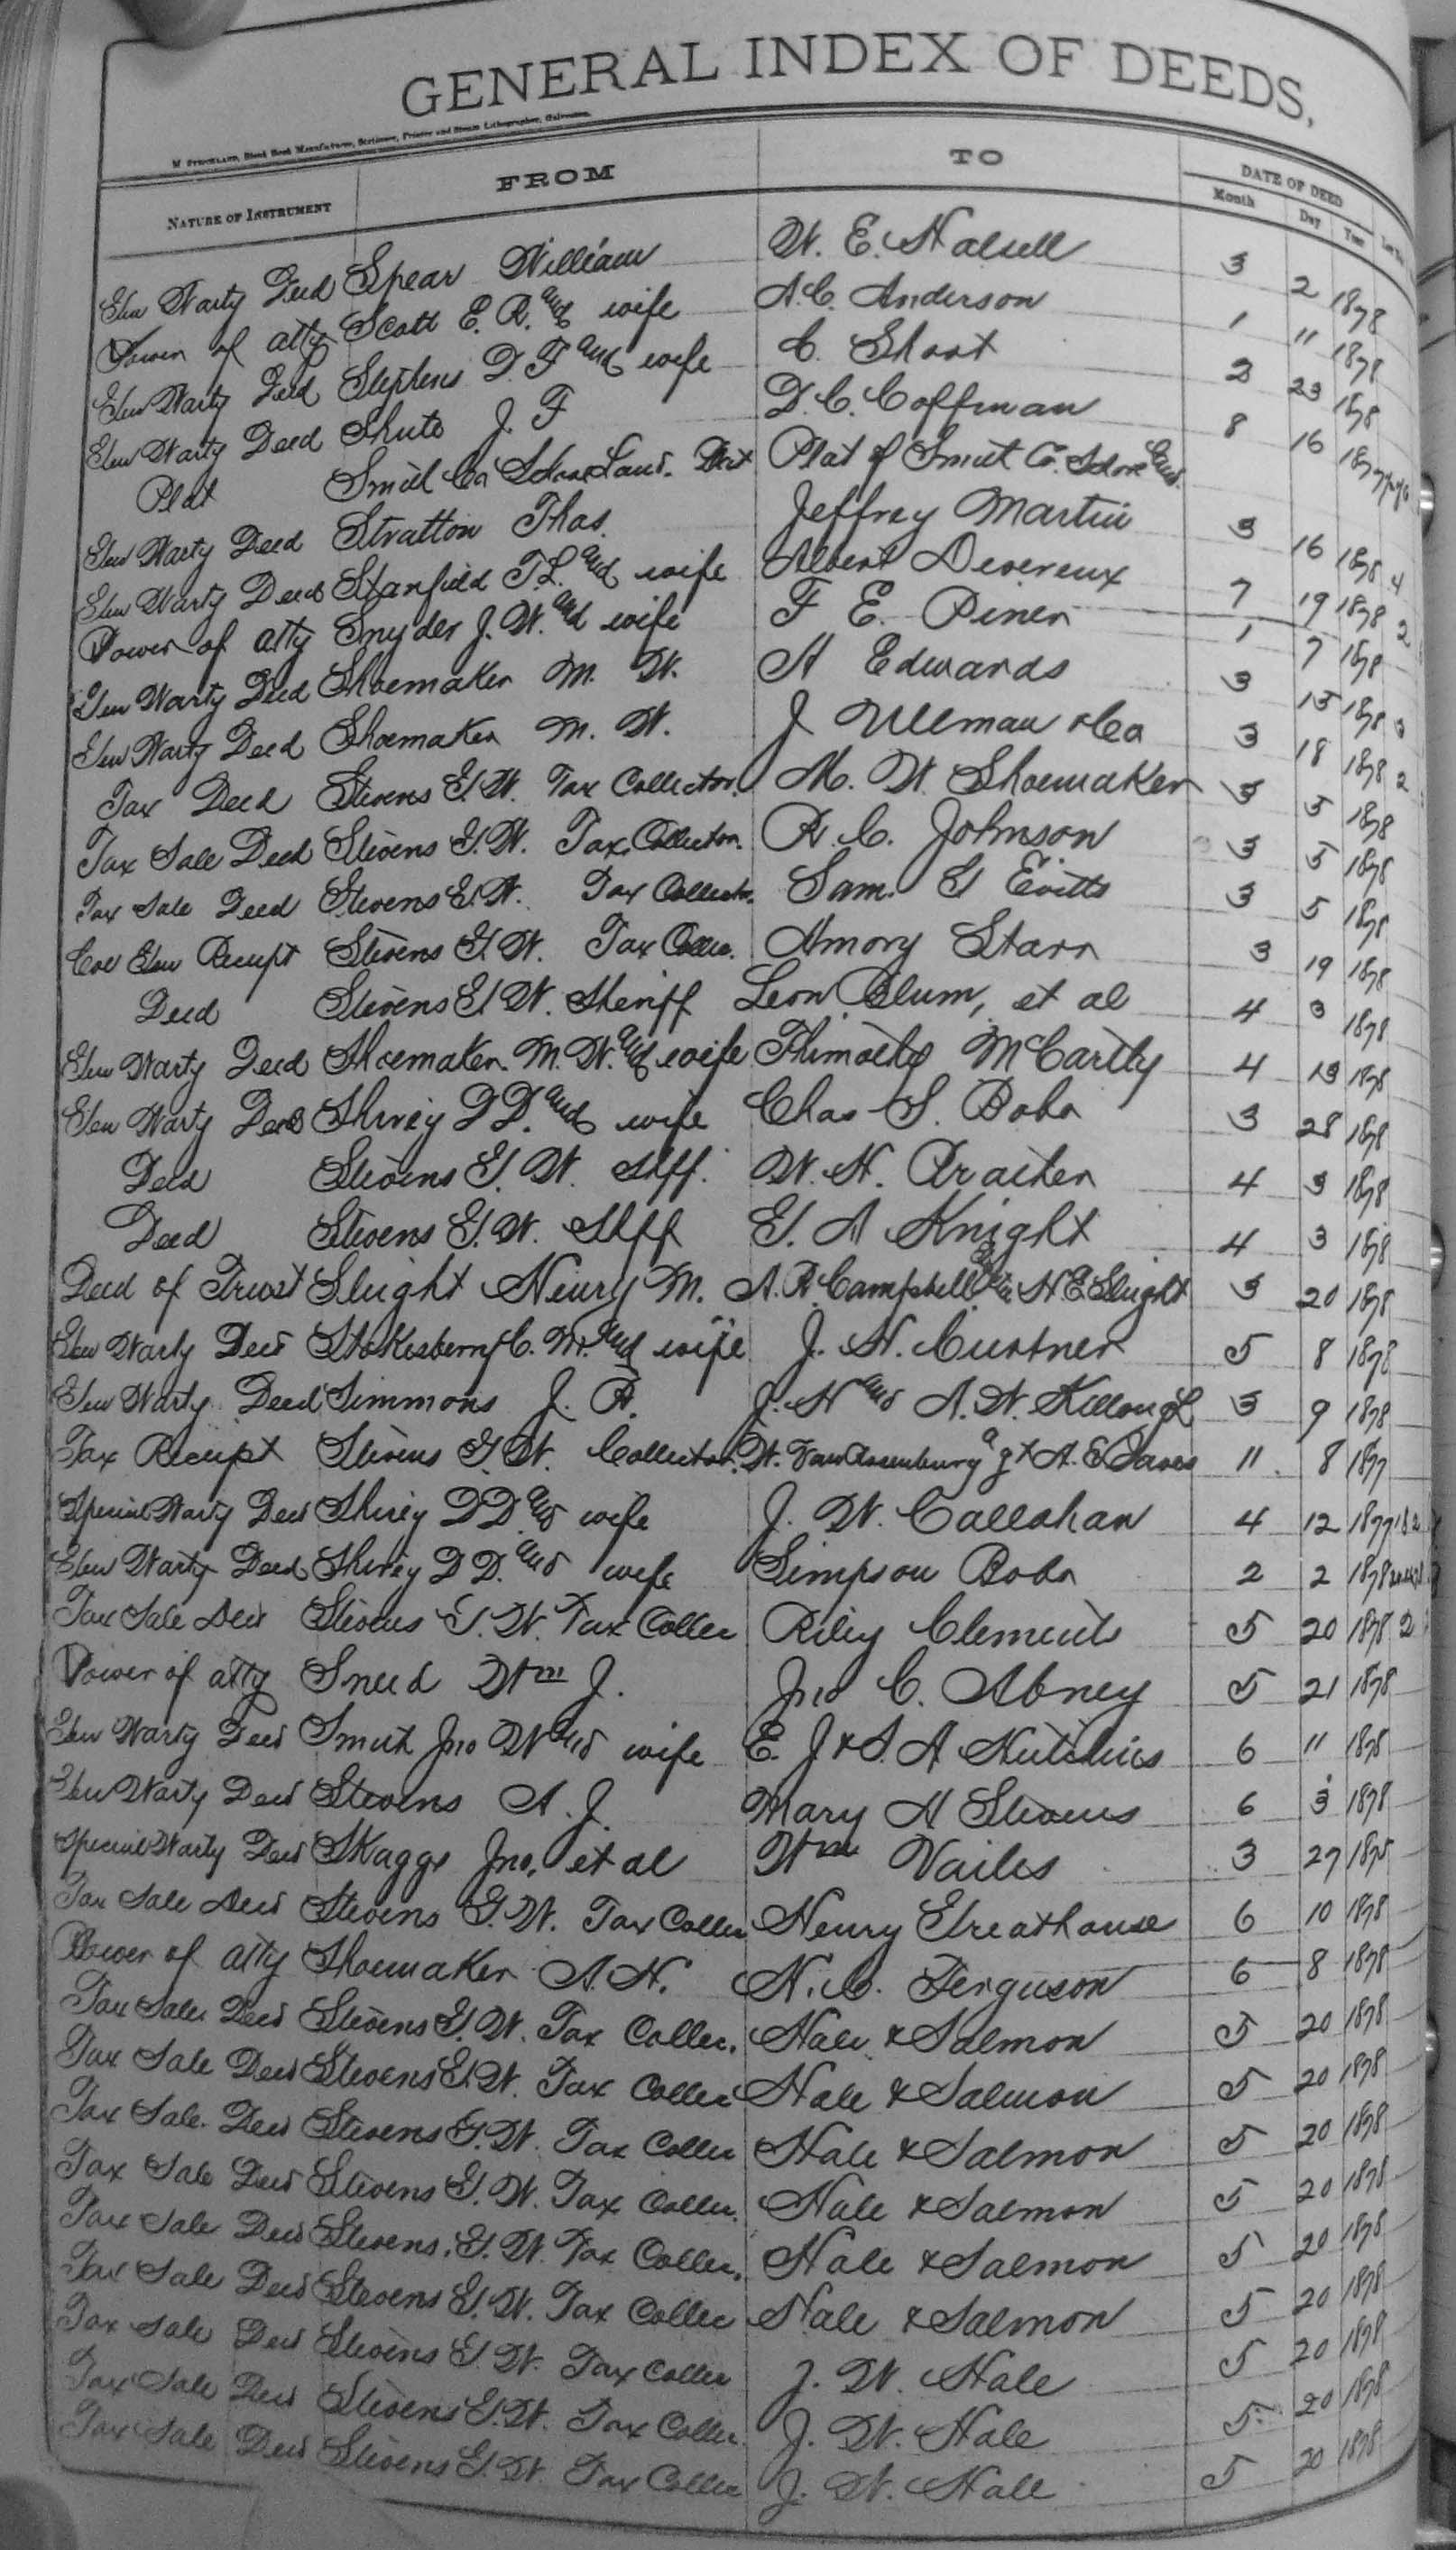 GENERAL INDEX OF DEEDS,
M STRICKLAND, Blank Book Manufacturer, Stationer, Printer and Steam Lithographer, Galveston.
NATURE OF INSTRUMENT FROM TO DATE OF DEED
Month Day Year
Gen Warty Deed Spear William W. E. Halsell 3 2 1878
Power of atty Scott E. R. and wife A. C. Anderson 1 11 1878
Gen Warty Deed Stephens D. F and wife C. Short 23 1878
Gen Warty Deed Shute J. F D. C. Coffman 8 16 1877
Plat Smith Co School Land. Plat of Smith Co. School Land.
Gen Warty Deed Stratton Thos. Jeffrey Martin 3 16 1878 4
Gen Warty Deed Stanfield T. L. and wife Albert Devereux 7 19 1878 2
Power of atty Snyder J. W. and wife F E. Piner 1 7 1878
Gen Warty Deed Shoemaker M. W. H Edwards 3 15 1878 3
Gen Warty Deed Shoemaker M. W. J Ullman & Co 3 18 1878 2
Tax Deed Stevens G. W. Tax Collector. M. W. Shoemaker 3 5 1878
Tax Sale Deed Stevens G. W. Tax Collector. R. C. Johnson 3 5 1878
Tax Sale Deed Stevens G. W. Tax Collector. Sam. G Evitts 3 5 1878
Receipt Stevens G. W. Tax Collec. Amory Starr 3 19 1878
Deed Stevens G. W. Sheriff Leon Blum, et al 4 3 1878
Gen Warty Deed Shoemaker M. W. and wife McCartly 4 13 1878
Gen Warty Deed Shirey D D. and wife Chas S. Bobo 3 28 1878
Deed Stevens G. W. Shff. W. H. Prather 4 3 1878
Deed Stevens G. W. Shff G. A Knight 4 3 1878
Deed of Trust Sleight Henry M. A. R. Campbell H E Sleight 3 20 1878
Gen Warty Deed Stokesberry C. M. and wife J. H. Curtner 5 8 1878
Gen Warty Deed Simmons J. R. J. H and A. W. Killough 3 9 1878
Tax Receipt Stevens G. W. Collector. W. Van Rosenburg agt A. E 11 8 1877
Special Warty Deed Shirey D D. and wife J. W. Callahan 4 12 1877
Gen Warty Deed Shirey D D. and wife Simpson Bobo 2 2 1878
Tax Sale Deed Stevens G. W. Tax Collec Riley Clements 5 20 1878 2
Power of atty Sneed Wm J. Jno C. Abney 5 21 1878
Gen Warty Deed Smith Jno W and wife E. J & S. A Hutchins 6 11 1878
Gen Warty Deed Stevens A. J. Mary H Stevens 6 3 1878
Special Warty Deed Skaggs Jno, et al Wm Vailes 3 27 1875
Tax Sale Deed Stevens G. W. Tax Collec Henry Greathouse 6 10 1878
Power of atty Shoemaker A. H. H. C. Ferguson 6 8 1878
Tax Sale Deed Stevens G. W. Tax Collec. Hale & Salmon 5 20 1878
Tax Sale Deed Stevens G. W. Tax Collec Hale & Salmon 5 20 1878
Tax Sale. Deed Stevens G. W. Tax Collec Hale & Salmon 5 20 1878
Tax Sale Deed Stevens G. W. Tax Collec. Hale & Salmon 5 20 1878
Tax Sale Deed Stevens. G. W. Tax Collec. Hale & Salmon 5 20 1878
Tax Sale Deed Stevens G. W. Tax Collec Hale & Salmon 5 20 1878
Tax Sale Deed Stevens G. W. Tax Collec J. W. Hale 5 20 1878
Tax Sale Deed Stevens G. W. Tax Collec. J. W. Hale 5 20 1878
Tax Sale Deed Stevens G. W. Tax Collec J. W. Hale 5 20 1878